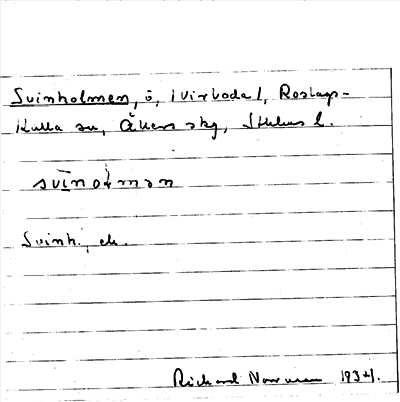 Svinholmen, ö, (Virboda), Roslags-
Kulla sn, Åkers skg, Sthlms l.
svinoɫmən
Svinh., ek.
Richard Norrman 1934.